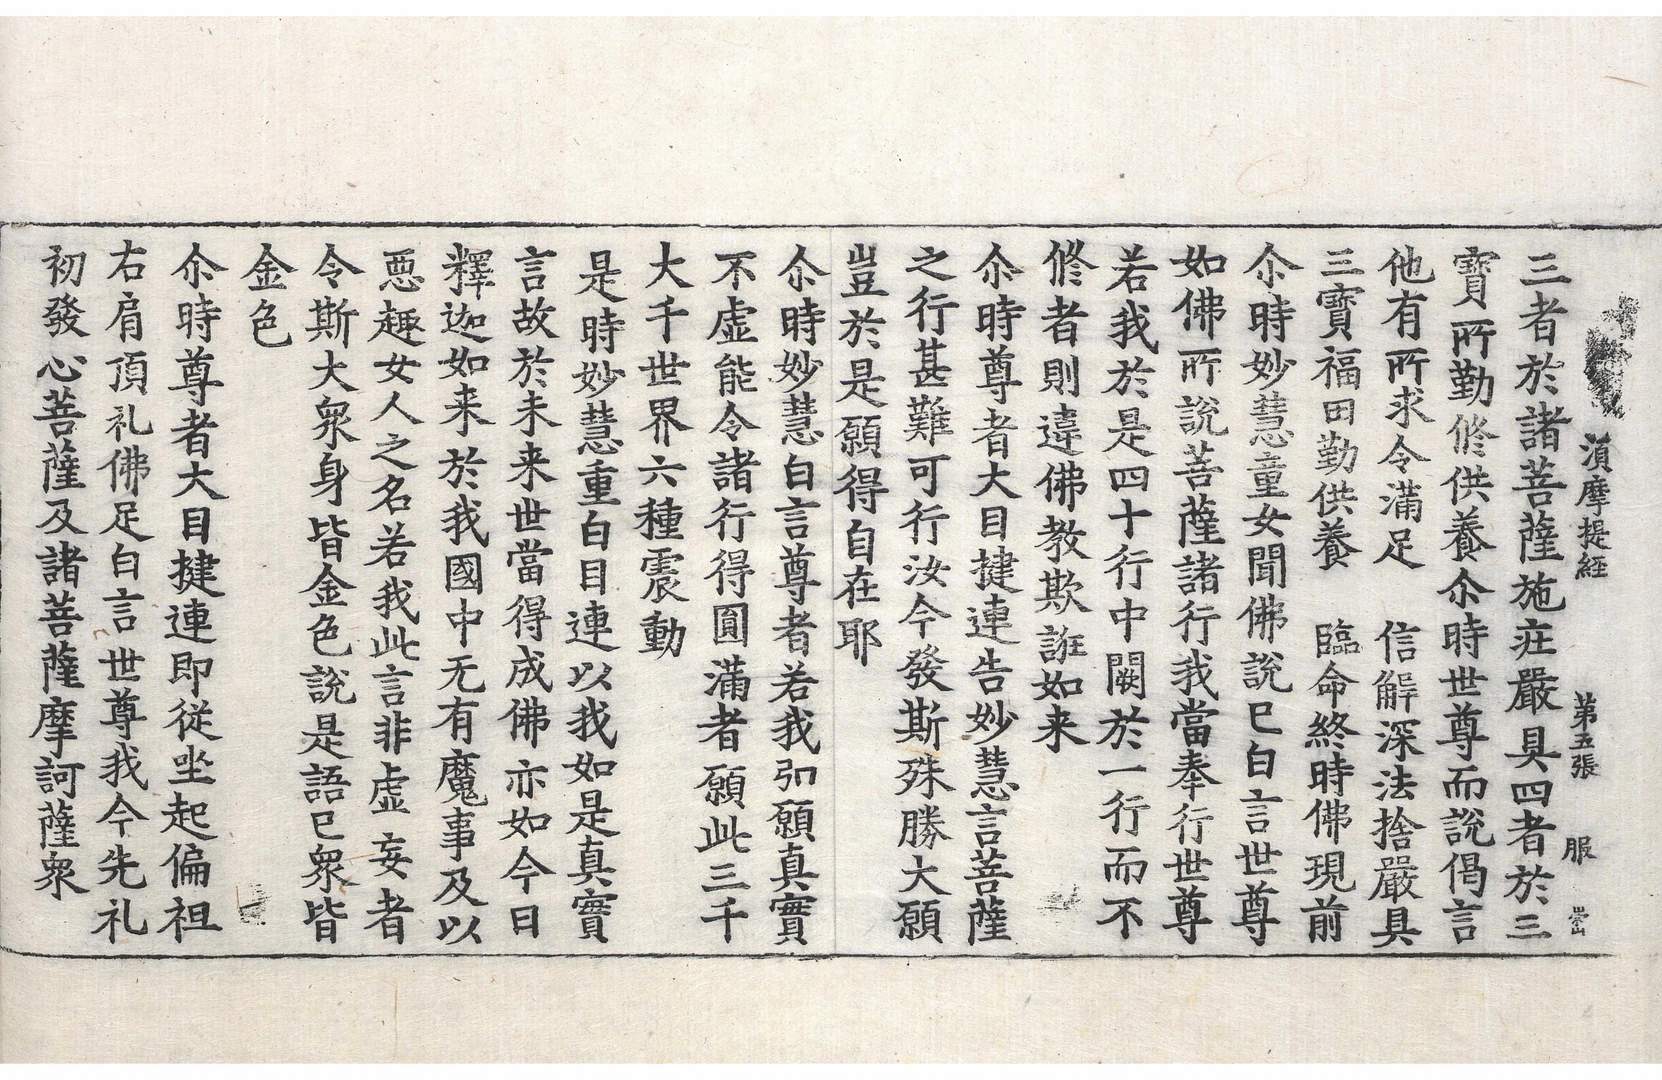 湏摩提經 第五張 服 崇
三者於諸菩薩施疘嚴具四者於三
寶所勤修供養尒時世尊而說偈言
他有所求令滿足 信解深法捨嚴具
三寶福田勤供養 臨命終時佛現前
尒時妙慧童女聞佛說已白言世尊
如佛所說菩薩諸行我當奉行世尊
若我於是四十行中闕於一行而不
修者則違佛教欺誑如来
尒時尊者大目揵連告妙慧言菩薩
之行甚難可行汝今發斯殊勝大願
豈於是願得自在耶
尒時妙慧白言尊者若我弘願真實
不虛能令諸行得圓滿者願此三千
大千世界六種震動
是時妙慧重白目連以我如是真實
言故於未来世當得成佛亦如今日
釋迦如来於我國中无有魔事及以
惡趣女人之名若我此言非虛妄者
令斯大衆身皆金色說是語已衆皆
金色
尒時尊者大目揵連即從坐起偏袒
右肩頂礼佛足白言世尊我今先礼
初發心菩薩及諸菩薩摩訶薩衆